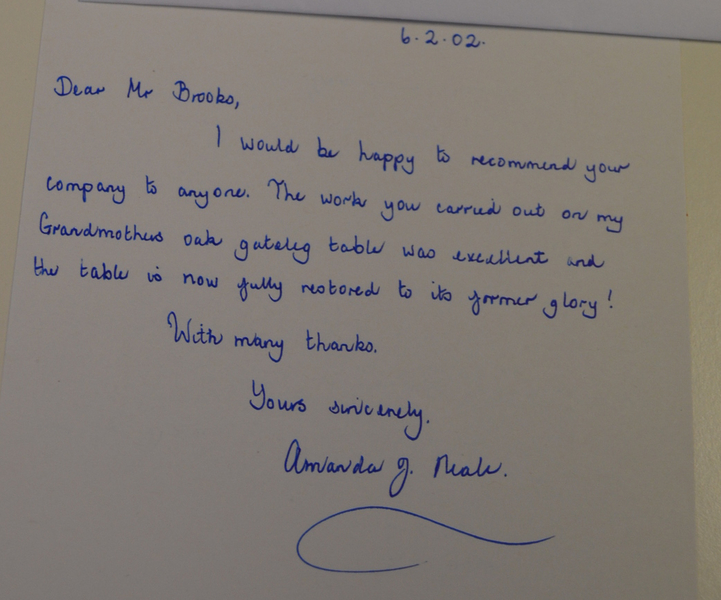 6.2.02.
Dear Mr Brooks,
I would be happy to recommend your
company to anyone. The work you carried out on my
Grandmothers oak gateleg table was excellent and
the table is now fully restored to its former glory!
With many thanks.
Yours sincerely,
Amanda J. Neale.